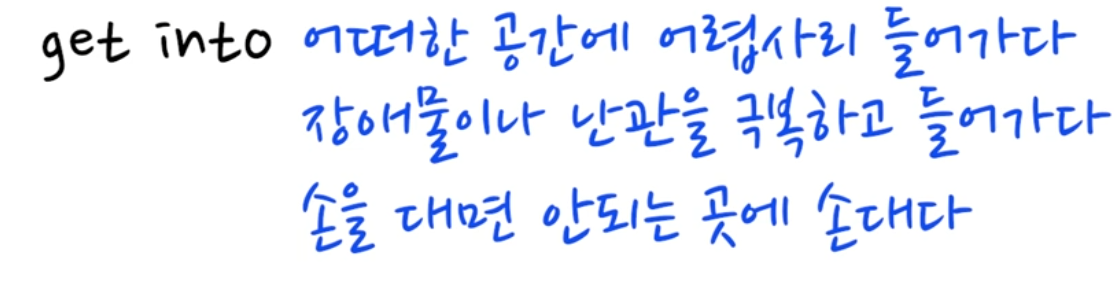 get into 어떠한 공간에 어렵사리 들어가다
장애물이나 난관을 극복하고 들어가다
손을 대면 안되는 곳에 손대다